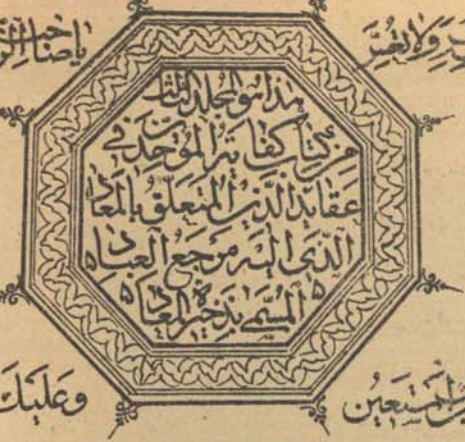 ولا تعسر
يا صاحب
هذا هو المجلد الثالث
من كتاب كفاية الموحدين في
عقايد الدين المتعلق بالمعاد
الذي اليه مرجع العباد
المسمى بذخيرة المعاد
وعليك